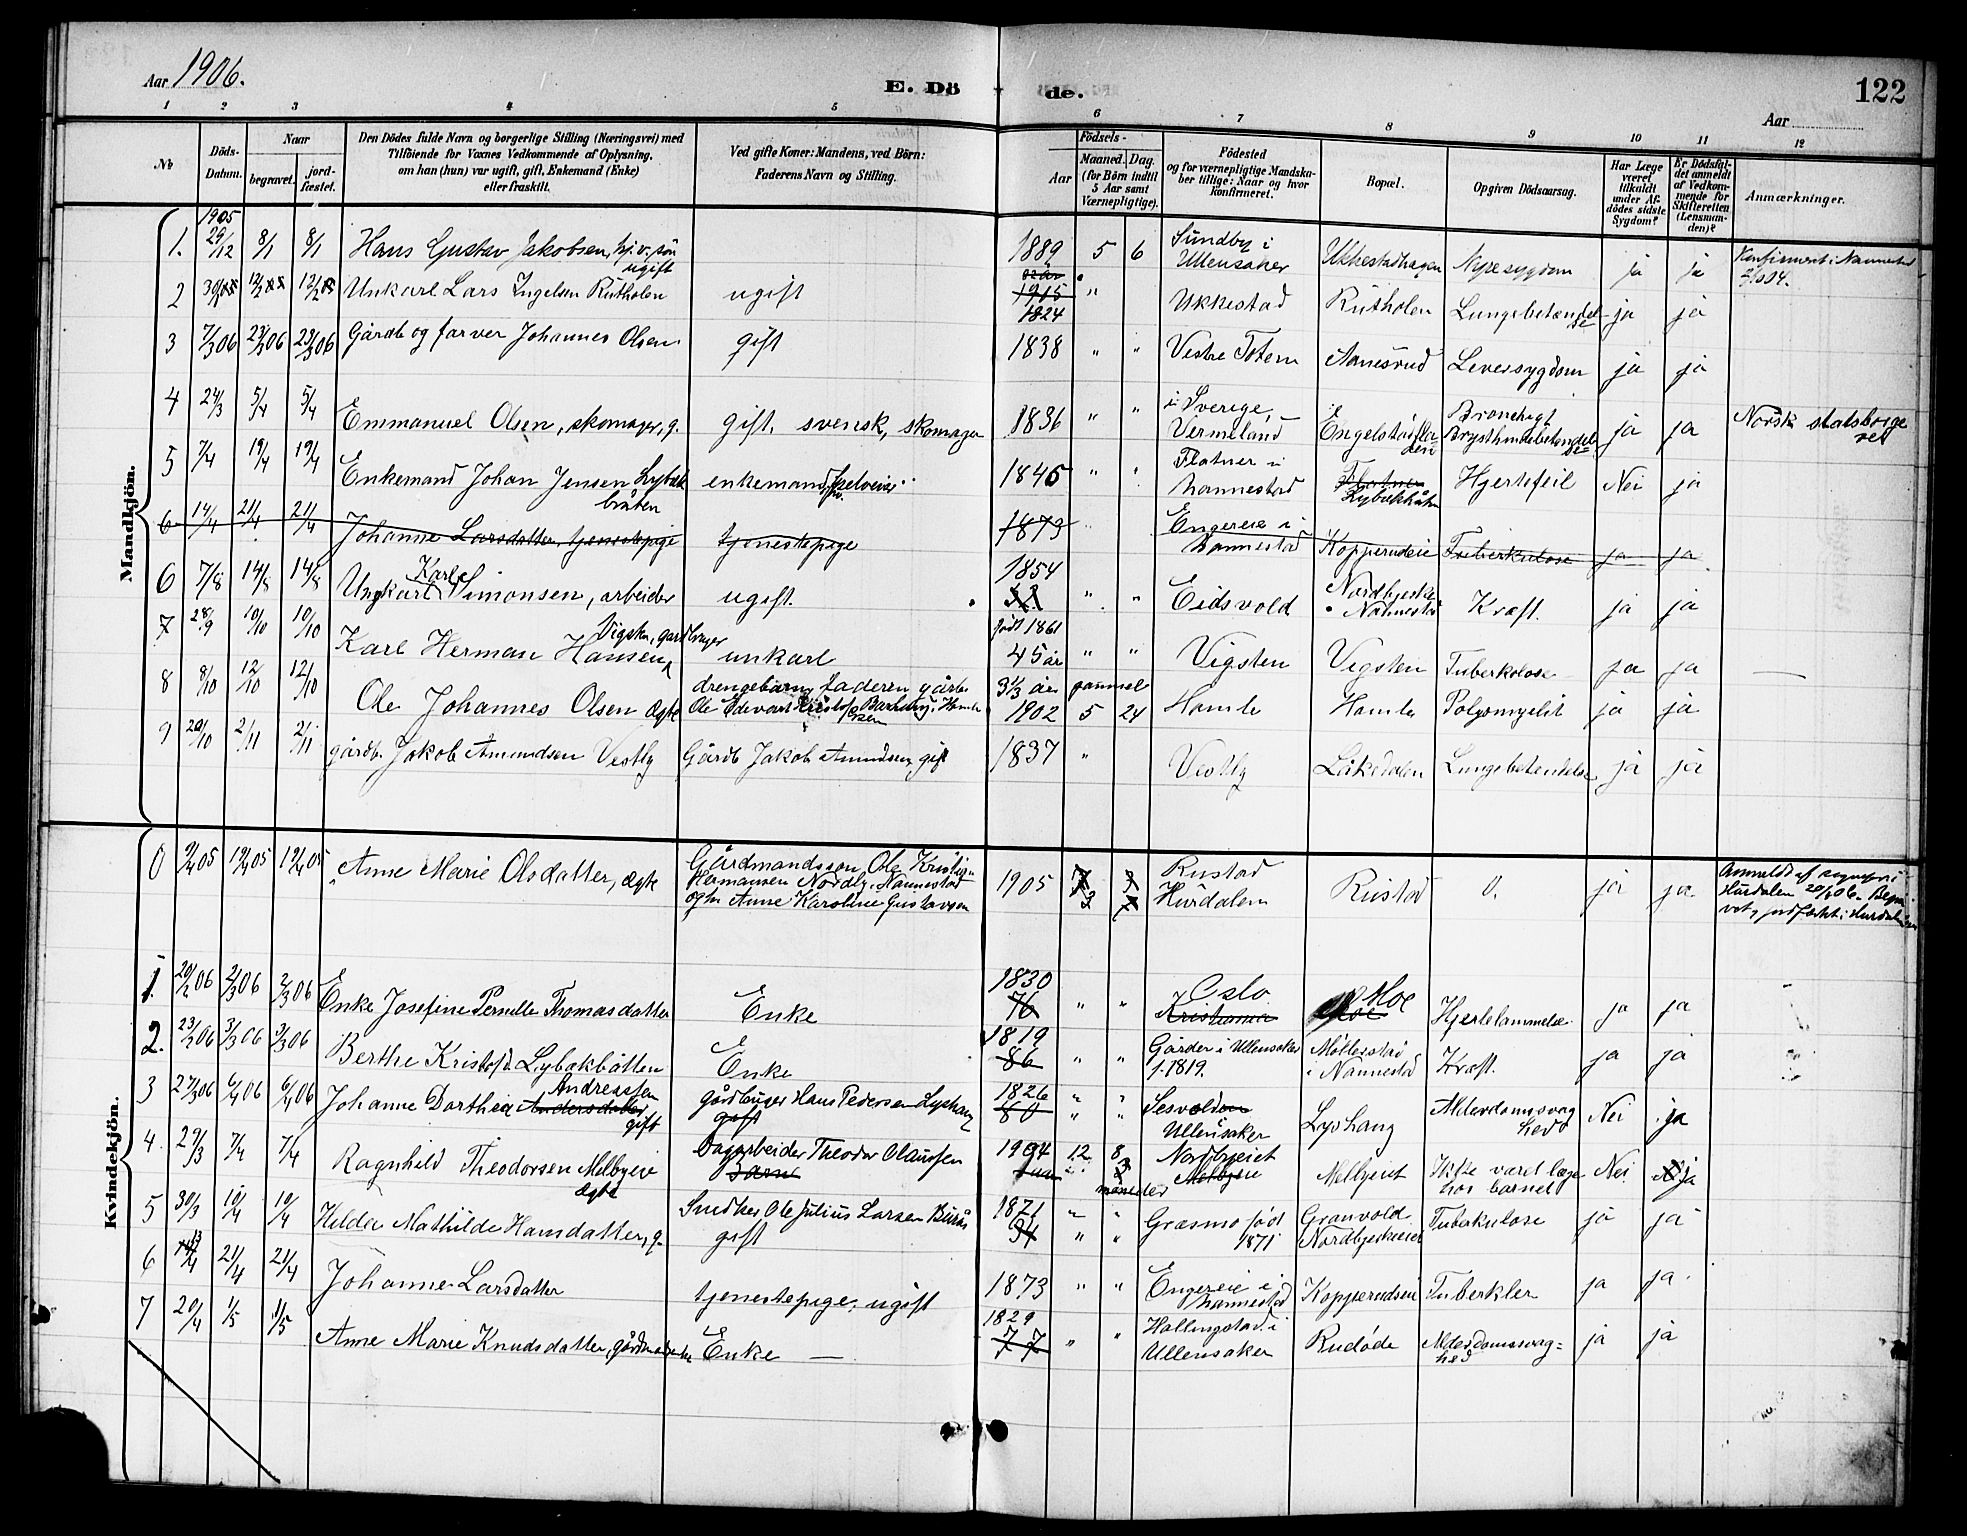 Aar 1906.
E. Döde.
122
Aar
1 2 3 4 5 6 7 8 9 10 11 12
No
Döds-Datum.
Naar
begravet.
jordfæstet.
Den Dödes fulde Navn og borgerlige Stilling (Næringsvei) med
Tilföiende for Voxnes Vedkommende af Oplysning,
om han (hun) var ugift, gift, Enkemand (Enke)
eller fraskilt.
Ved gifte Koner: Mandens, ved Börn:
Faderens Navn og Stilling.
Födsels-
Aar
Maaned. Dag.
(for Börn indtil
5 Aar samt
Værnepligtige).
Födested
og for værnepligtige Mandskaber tillige: Naar og hvor
konfirmeret.
Bopæl.
Opgiven Dödsaarsag.
Har Læge
været
tilkaldt
under Afdödes sidste
Sygdom?
Er Dödsfaldet anmeldt
af Vedkommende for
Skifteretten
(Lensmanden)?
Anmærkninger.
Mandkjön.
1. 1905 29/12 8/1 8/1 Hans Gustav Jakobsen, ugift 1889 5 6 Sundby i Ullensaker Ukkestadhagen Nyresygdom ja ja Konfirmert i Nannestad 04.
2 Unkarl Lars Ingelsen Rutholen ugift 1915 1824 " Ukkestad Rutholen Lungebetændelse ja ja
3 7/3 06 23/3 06 23/3 06 Gårdb og farver Johannes Olsen gift 1838 " " Vestre Toten Aanesrud Leversygdom ja ja
4 24/3 5/4 5/4 Emmanuel Olsen, skomager, g. gift, svensk, skomager 1836 " " i Sverige, Vermeland Engelstad Brysthindebetændelse ja ja Norsk statsborger
5 7/4 19/4 19/4 Enkemand Johan Jensen Lybækbråten enkemand, 1845 " " Flatner i Nannestad Flatner Lybekbåten Hjertefeil Nei ja
6 14/4 21/4 21/4 Johanne Larsdatter, tjenestepige tjenestepige 1873 " Engereie i Nannestad Kopperudeie Tuberkulose ja ja
6 7/8 14/8 14/8 Ungkarl Karl Simonsen, arbeider ugift. 1854 " " Eidsvold Nordbjeske Nannestad Kræft. ja ja
7 28/9 10/10 10/10 Karl Herman Hansen Vigsten, gardbruger unkarl født 1861 45 år " " Vigsten Vigsten Tuberkolose ja ja —
8 8/10 12/10 12/10 Ole Johannes Olsen ægte drengebarn, faderen gårdb Ole Edevart 3 1/3 år gammel 1902 5 24 Homle Homle Polyomyelit ja ja
9 20/10 2/11 2/11 gårdb. Jakob Amundsen Vestly Gårdb Jakob Amundsen, gift 1837 " Vestly Låkedalen Lungebetendelse ja ja
Kvindekjön.
0 9/4 05 19/4 05 19/4 05 Anne Marie Olsdatter, ægte Gårdmandssøn Ole Kristian Hermansen Nordby, Nannestad og hu Anne Karoline Gustavsen 1905 Rustad Hurdalen Rustad 0. ja ja Anmeldt af sognepr i Hurdalen 20/1 06. Begravet, jordfæstet i Hurdalen
1. 20/2 06 2/3 06 2/3 06 Enke Josefine Pernille Thomasdatter Enke 1830 76 " " Oslo Kristiania Moe Hjertelammelse ja ja
2. 23/2 06 3/3 06 3/3 06 Berthe Kristofd. Lybækbåtten Enke 1819 86 " " Gårder i Ullensaker f. 1819. Møllerstad i Nannestad Kræft. ja ja
3 27/3 06 6/4 06 6/4 06 Johanne Dorthea Andersdatter Andreassen gift gårdbruger Hans Pedersen Lyshaug gift 1826 80 " " Sesvolden Ullensaker Lyshaug Alderdomsvaghed Nei ja
4. 29/3 7/4 7/4 Ragnhild Theodorsen Melbyeie ægte Dagarbeider Theodor Olaussen Barn 1904 12 8 måneder Nordbyeiet Melbyeie Melbyeiet Ikke været læge hos barnet Nei ja
5 30/3 10/4 10/4 Helda Mathilde Hansdatter, g. Smdker Ole Julius Larsen gift 1871 34 " " Græsmo född 1871 Granvold Nordbjeskeeie Tuberkulose ja ja
6 13/4 21/4 21/4 Johanne Larsdatter tjenestepige, ugift 1873 " " Engereie i Nannestad Kopperudseie Tuberkler ja ja
7 20/4 1/5 1/5 Anne Marie Knudsdatter, Enke — 1829 77 " " Hallingstad i Ullensaker Rudøde Alderdomsvaghed ja ja